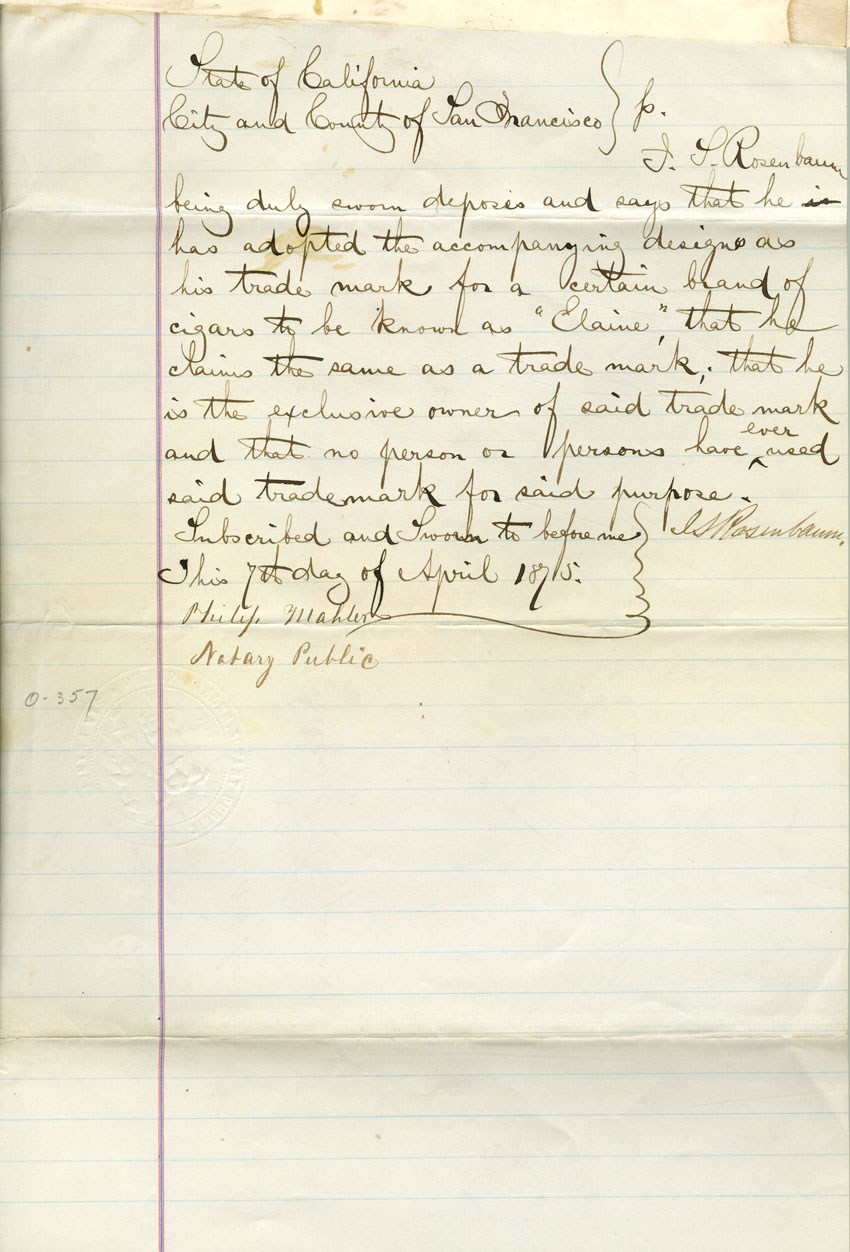 State of California
City and County of San Francisco } ss.
I. S. Rosenbaum
being duly sworn deposes and says that he is
has adopted the accompanying design as
his trade mark for a certain brand of
cigars to be known as "Elaine", that he
claims the same as a trade mark; that he
is the exclusive owner of said trade mark
and that no person or persons have ever used
said trade mark for said purpose.
Subscribed and Sworn to before me } I S Rosenbaum.
This 7th day of April 1875.
Philip Mahler
Notary Public
0-357